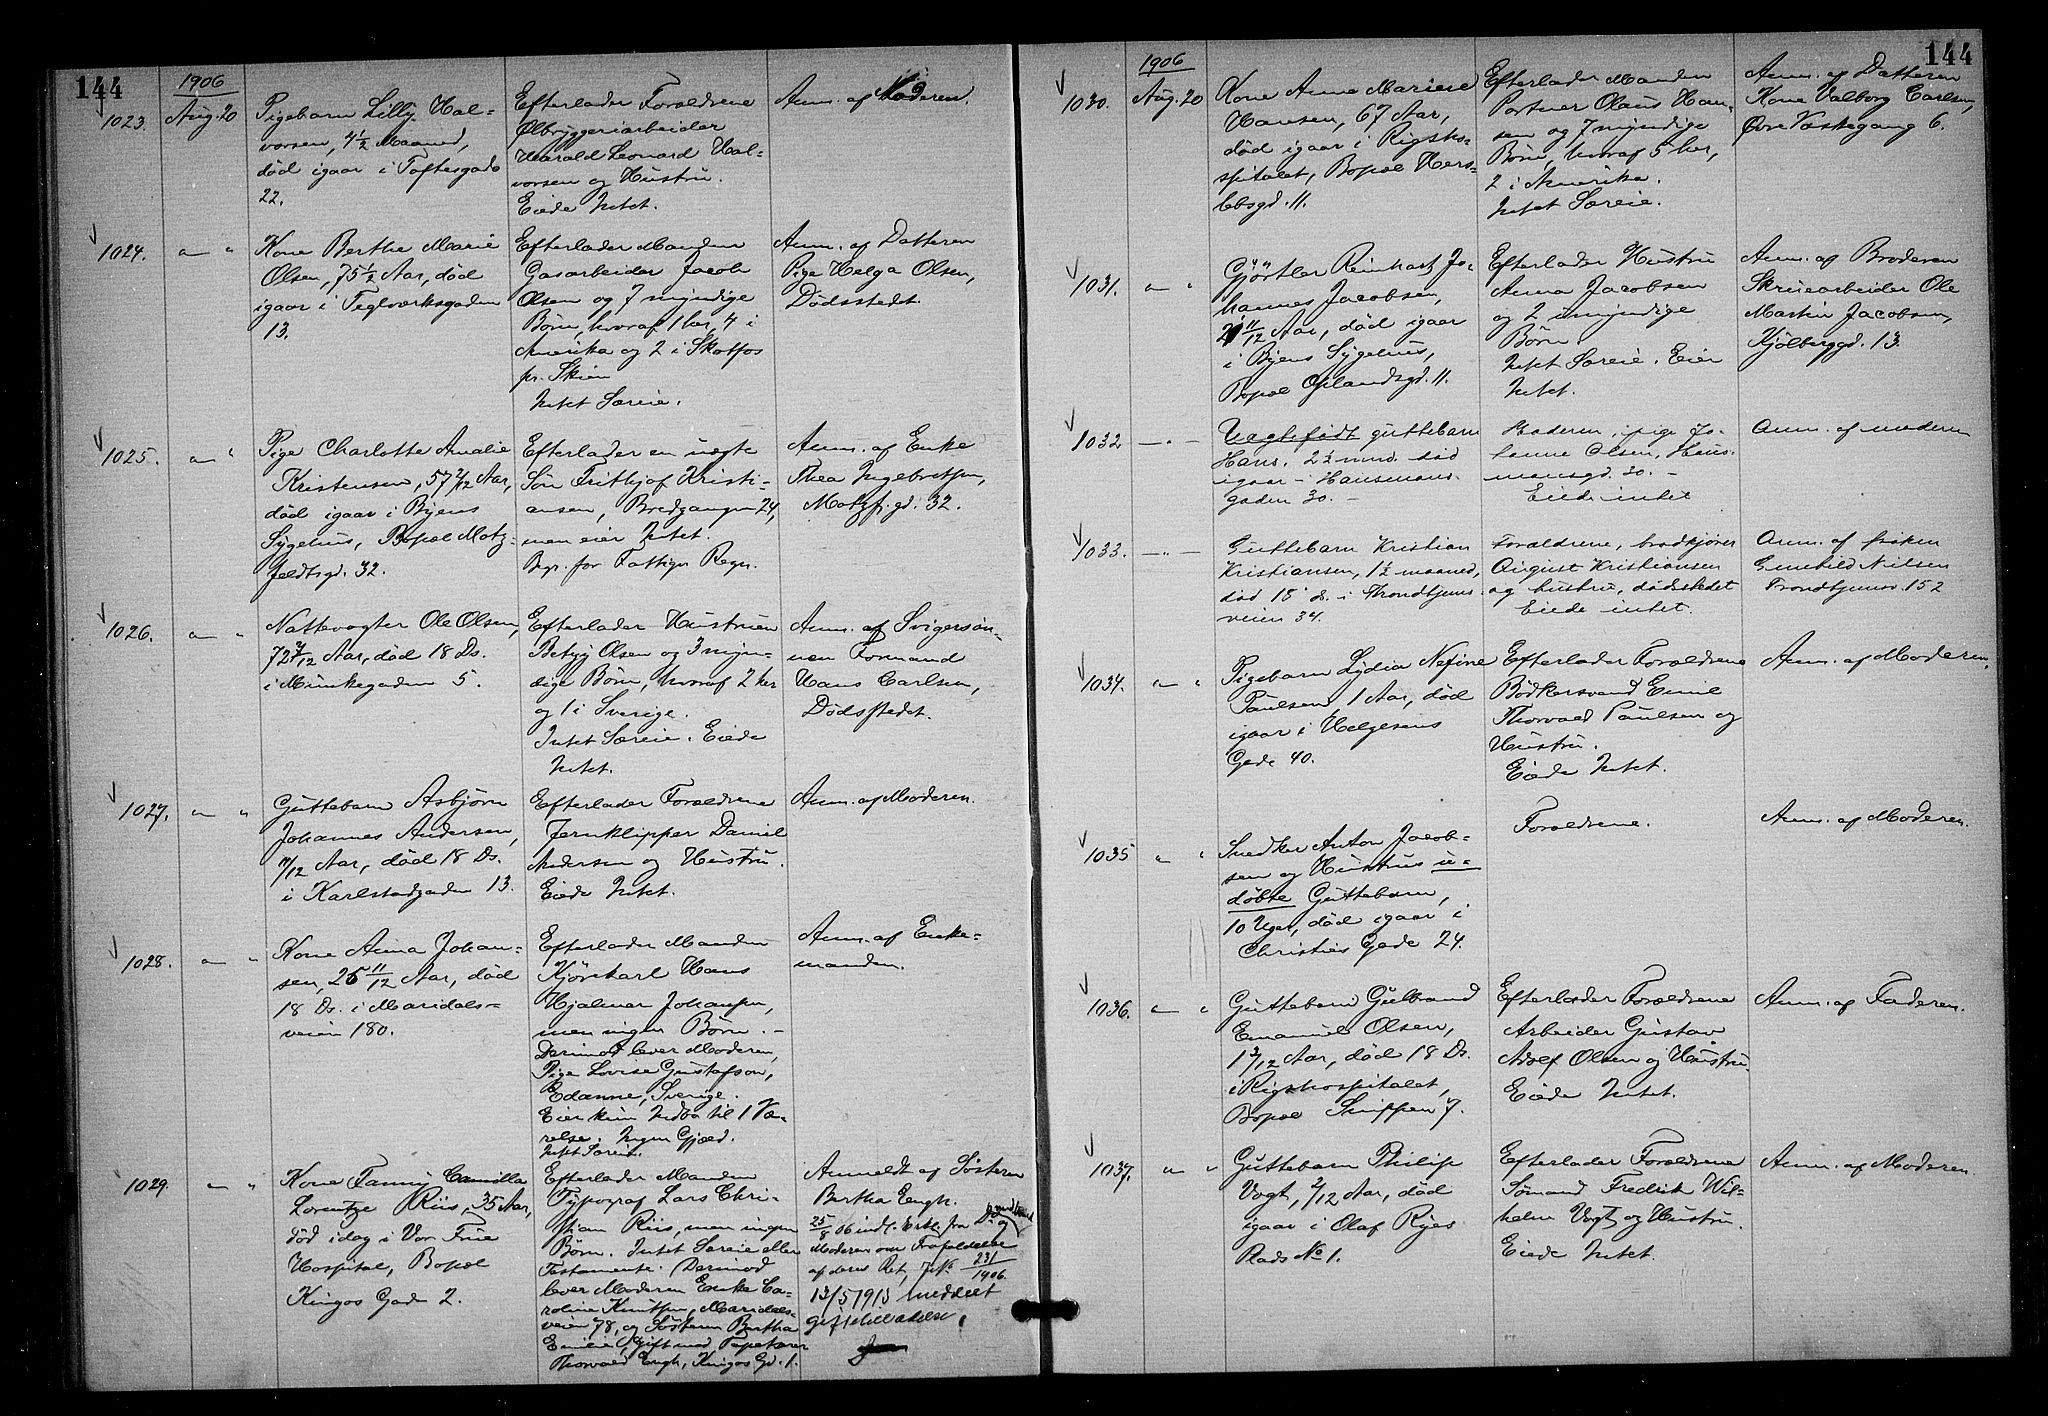 144
1906
1023.
Aug. 20
Pigebarn Lilly Hal-
vorsen, 4 1/2 Maaned,
død igaar i Toftesgade
22.
Efterlader Forældrene
Ølbryggeriarbeider
Harald Leonard Hal-
vorsen og Hustru.
Eiede Intet.
Anm. af Moderen.
1024.
— "
Kone Berthe Marie
Olsen, 75 1/2 Aar, død
igaar i Teglværksgaden
13.
Efterlader Manden
Gasarbeider Jacob
Olsen og 7 myndige
Børn, hvoraf 1 her, 4 i
Amerika og 2 i Skotfos
pr. Skien
Intet Særeie.
Anm. af Datteren
Pige Helga Olsen,
Dødsstedet.
1025.
— "
Pige Charlotte Amalie
Kristensen, 57 2/12 Aar,
død igaar i Byens
Sygehus, Bopæl Motz-
feldtsgd. 32.
Efterlader en uægte
Søn Frithjof Kristi-
ansen, Bredgangen 24,
men eier Intet.
Begr. for Fattigv. Regn.
Anm. af Enke
Thea Ingebretsen,
Motzf. gd. 32.
1026.
— "
Nattevogter Ole Olsen,
død 18 Ds.
i Munkegaden 5.
Efterlader Hustruen
Betzy Olsen og 3 myn-
dige Børn, hvoraf 2 her
og 1 i Sverige.
Intet Særeie. Eiede
Intet.
Anm. af Svigersøn-
nen Formand
Hans Carlsen,
Dødsstedet.
1027.
— "
Guttebarn Asbjørn
Johannes Andersen,
11/12 Aar, død 18 Ds.
i Karlstadgaden 13.
Efterlader Forældrene
Jernklipper Daniel
Andersen og Hustru.
Eiede Intet.
Anm. af Moderen.
1028.
— "
Kone Anna Johan-
sen, 25 11/12 Aar, død
18 Ds. i Maridals-
veien 180.
Efterlader Manden
Kjørekarl Hans
Hjalmar Johansen,
men ingen Børn. -
Derimod lever Moderen,
Pige Lovise Gustafson,
Edanne, Sverige.
Eier kun Indbo til 1 Væ-
relse. Ingen Gjæld.
Intet Særeie.
Anm. af Enke-
manden.
1029.
— "
Kone Fanny Camilla
Lorentze Riis, 35 Aar,
død idag i Vor Frue
Hospital, Bopæl
Kingos Gade 2.
Efterlader Manden
Typograf Lars Chri-
stian Riis, men ingen
Børn. Intet Særeie eller
Testamente. Derimod
lever Moderen Enke Ca-
roline Knutsen, Maridals-
veien 78, og Søsteren Bertha
Emilie, gift med Tapetserer
Thorvald Engh, Kingos Gd. 1.
Anmeldt af Søsteren
Bertha Engh.
25/8 06 indt. Erkl. fra
Moderen om Frafaldelse
af deres Ret, J. No. 231/1906.
13/5 1913 meddelt
giftetilladelse.
144
1906
1030.
Aug. 20
Kone Anna Mariene
Hansen, 67 Aar,
død igaar i Rigsho-
spitalet, Bopæl Hers-
lebsgd. 11.
Efterlader Manden
Portner Olaus Han-
sen og 7 myndige
Børn, hvoraf 5 her,
2 i Amerika.
Intet Særeie.
Anm. af Datteren
Kone Valborg Carlsen,
Øvre Vaskegang 6.
1031.
— "
Gjørtler Reinhart Jo-
hannes Jacobsen,
11/12 Aar, død igaar
i Byens Sygehus,
Bopæl Oplandsgd. 11.
Efterlader Hustru
Anna Jacobsen
og 2 umyndige
Børn
Intet Særeie. Eier
Intet.
Anm. af Broderen
Skruearbeider Ole
Martin Jacobsen,
Kjølberggd. 13.
1032
— " —
Uægtefødt guttebarn
Hans, 2 1/2 mnd. død
igaar i Hausmans-
gaden 30. -
Moderen, pige Jo-
lenne Olsen, Haus-
mansgd. 30. -
Eiede intet
Anm. af moderen
1033.
— " —
Guttebarn Kristian
Kristiansen, 1 1/2 maaned,
død 18 ds. i Trondtjems-
veien 34.
Forældrene, brødkjører
August Kristiansen
og hustru, dødsstedet
Eiede intet.
Anm. af frøken
Nielsen
Trondtjemsv. 152
1034.
— "
Pigebarn Lydia Nefine
Paulsen, 1 Aar, død
igaar i Helgesens
Gade 40.
Efterlader Forældrene
Bødkersvend Emil
Thorvald Paulsen og
Hustru.
Eiede Intet.
Anm. af Moderen.
1035
" "
Snedker Anton Jacob-
sen og Hustrus u-
døbte Guttebarn,
10 Uger, død igaar i
Christies Gade 24.
Forældrene.
Anm. af Moderen.
1036.
— "
Guttebarn Gulbrand
Emanuel Olsen,
1 3/12 Aar, død 18 Ds.
i Rigshospitalet,
Bopæl Snippen 7.
Efterlader Forældrene
Arbeider Gustav
Adolf Olsen og Hustru.
Eiede Intet.
Anm. af Faderen.
1037.
— "
Guttebarn Philip
Vogt, 2/12 Aar, død
igaar i Olaf Ryes
Plads No 1.
Efterlader Forældrene
Sømand Fredrik Wil-
helm Vogt og Hustru.
Eiede Intet.
Anm. af Moderen.